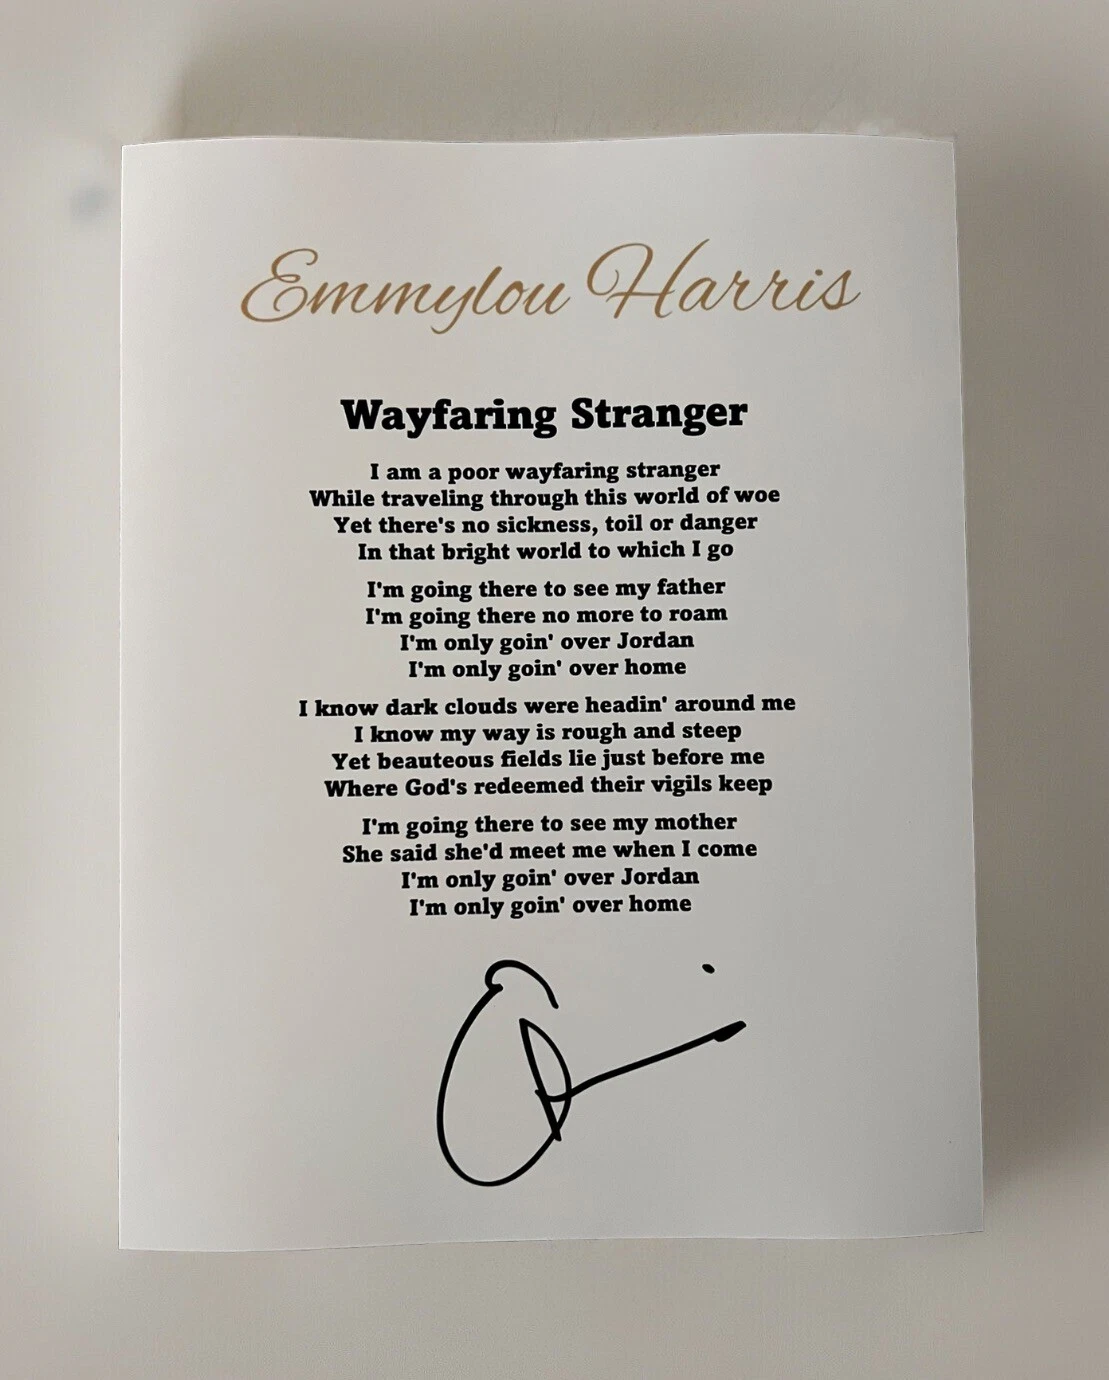 Emmylou Harris
Wayfaring Stranger
I am a poor wayfaring stranger
While traveling through this world of woe
Yet there's no sickness, toil or danger
In that bright world to which I go
I'm going there to see my father
I'm going there no more to roam
I'm only goin' over Jordan
I'm only goin' over home
I know dark clouds were headin' around me
I know my way is rough and steep
Yet beauteous fields lie just before me
Where God's redeemed their vigils keep
I'm going there to see my mother
She said she'd meet me when I come
I'm only goin' over Jordan
I'm only goin' over home